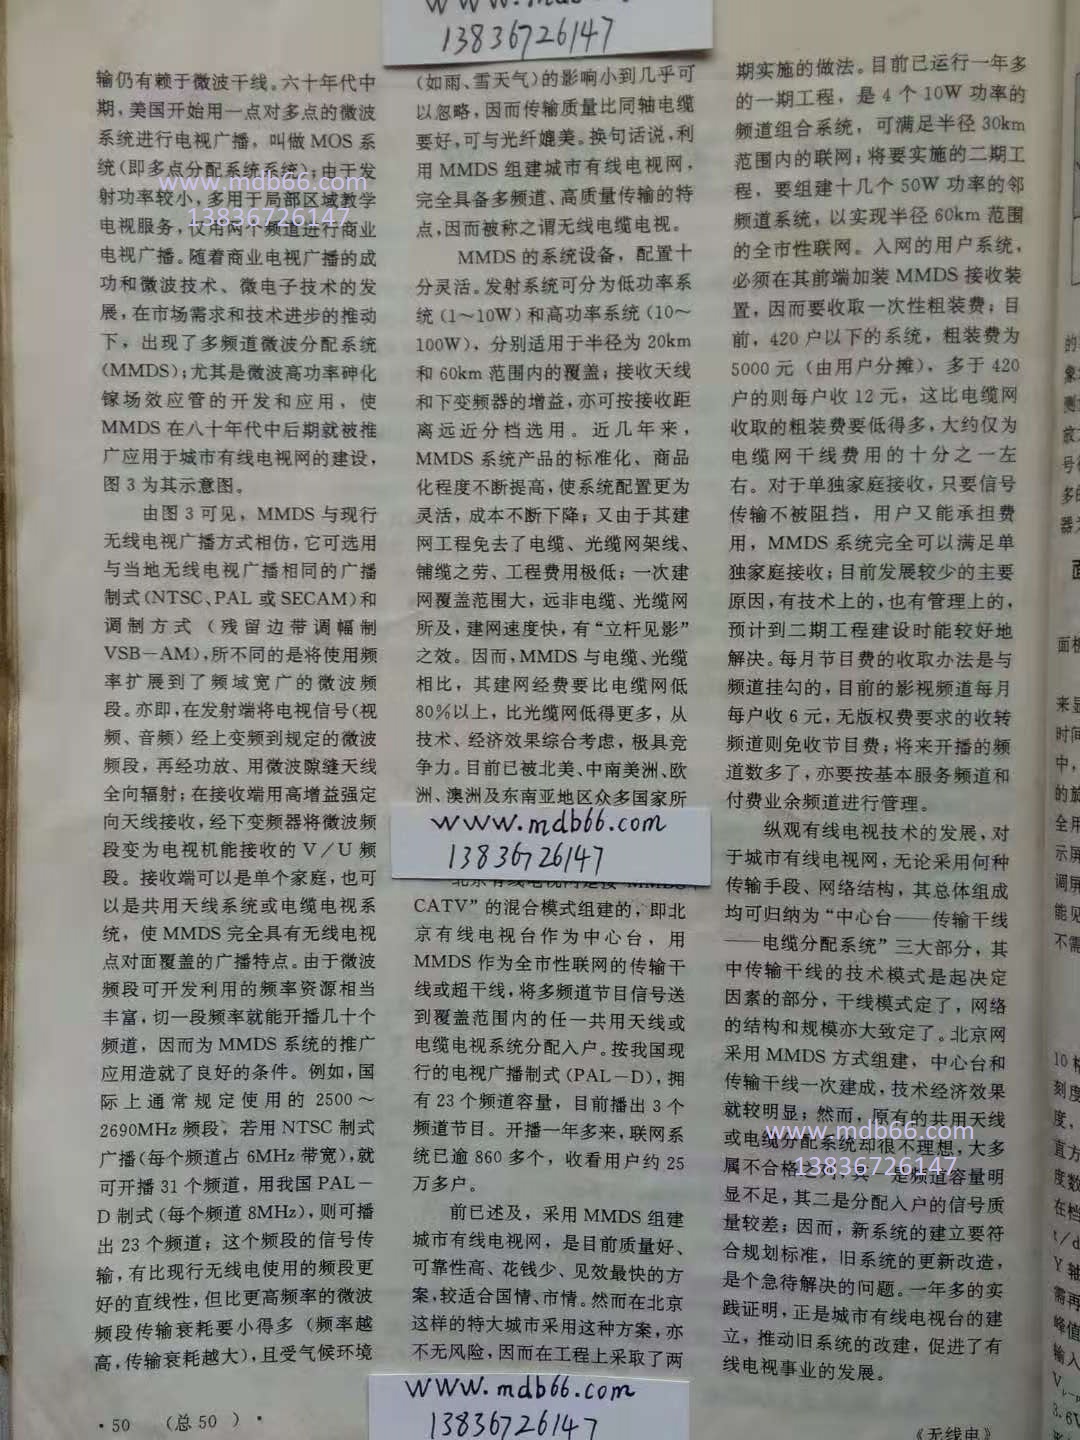 www.mdb66.com
13836726147
输仍有赖于微波干线。六十年代中
期,美国开始用一点对多点的微波
系统进行电视广播，叫做 MOS 系
统(即多点分配系统系统);由于发
射功率较小,多用于局部区域教学
电视服务，仅用两个频道进行商业
电视广播。随着商业电视广播的成
功和微波技术、微电子技术的发
展,在市场需求和技术进步的推动
下，出现了多频道微波分配系统
(MMDS);尤其是微波高功率砷化
镓场效应管的开发和应用，使
MMDS 在八十年代中后期就被推
广应用于城市有线电视网的建设,
图 3 为其示意图。
由图 3 可见，MMDS 与现行
无线电视广播方式相仿,它可选用
与当地无线电视广播相同的广播
制式(NTSC、PAL 或 SECAM)和
调制方式（残留边带调幅制
VSB－AM),所不同的是将使用频
率扩展到了频域宽广的微波频
段。亦即,在发射端将电视信号(视
频、音频）经上变频到规定的微波
频段，再经功放、用微波隙缝天线
全向辐射;在接收端用高增益强定
向天线接收,经下变频器将微波频
段变为电视机能接收的 V／U 频
段。接收端可以是单个家庭,也可
以是共用天线系统或电缆电视系
统，使 MMDS 完全具有无线电视
点对面覆盖的广播特点。由于微波
频段可开发利用的频率资源相当
丰富,切一段频率就能开播几十个
频道，因而为 MMDS 系统的推广
应用造就了良好的条件。例如,国
际上通常规定使用的 2500～
2690MHz 频段，若用 NTSC 制式
广播(每个频道占 6MHz 带宽),就
可开播 31 个频道，用我国 PAL－
D 制式(每个频道 8MHz)，则可播
出 23 个频道；这个频段的信号传
输,有比现行无线电使用的频段更
好的直线性,但比更高频率的微波
频段传输衰耗要小得多（频率越
高,传输衰耗越大),且受气候环境
(如雨、雪天气)的影响小到几乎可
以忽略,因而传输质量比同轴电缆
要好,可与光纤媲美。换句话说,利
用 MMDS 组建城市有线电视网，
完全具备多频道、高质量传输的特
点,因而被称之谓无线电缆电视。
MMDS 的系统设备，配置十
分灵活。发射系统可分为低功率系
统（1～10W）和高功率系统（10～
100W)，分别适用于半径为 20km
和 60km 范围内的覆盖;接收天线
和下变频器的增益,亦可按接收距
离远近分档选用。近几年来，
MMDS 系统产品的标准化、商品
化程度不断提高,使系统配置更为
灵活，成本不断下降；又由于其建
网工程免去了电缆、光缆网架线、
铺缆之劳、工程费用极低；一次建
网覆盖范围大，远非电缆、光缆网
所及,建网速度快,有“立杆见影”
之效。因而,MMDS 与电缆、光缆
相比，其建网经费要比电缆网低
80％以上，比光缆网低得更多，从
技术、经济效果综合考虑，极具竞
争力。目前已被北美、中南美洲、欧
洲、澳洲及东南亚地区众多国家所
www.mdb66.com
13836726147
CATV”的混合模式组建的，即北
京有线电视台作为中心台，用
MMDS 作为全市性联网的传输干
线或超干线,将多频道节目信号送
到覆盖范围内的任一共用天线或
电缆电视系统分配入户。按我国现
行的电视广播制式(PAL－D)，拥
有 23 个频道容量，目前播出 3 个
频道节目。开播一年多来,联网系
统已逾 860 多个，收看用户约 25
万多户。
前已述及，采用 MMDS 组建
城市有线电视网，是目前质量好、
可靠性高、花钱少、见效最快的方
案,较适合国情、市情。然而在北京
这样的特大城市采用这种方案,亦
不无风险,因而在工程上采取了两
期实施的做法。目前已运行一年多
的一期工程，是 4 个 10W 功率的
频道组合系统，可满足半径 30km
范围内的联网;将要实施的二期工
程，要组建十几个 50W 功率的邻
频道系统，以实现半径 60km 范围
的全市性联网。入网的用户系统，
必须在其前端加装 MMDS 接收装
置，因而要收取一次性粗装费；目
前，420 户以下的系统，粗装费为
5000 元（由用户分摊)，多于 420
户的则每户收 12 元，这比电缆网
收取的粗装费要低得多,大约仅为
电缆网干线费用的十分之一左
右。对于单独家庭接收,只要信号
传输不被阻挡，用户又能承担费
用，MMDS 系统完全可以满足单
独家庭接收;目前发展较少的主要
原因,有技术上的,也有管理上的,
预计到二期工程建设时能较好地
解决。每月节目费的收取办法是与
频道挂勾的,目前的影视频道每月
每户收 6 元,无版权费要求的收转
频道则免收节目费;将来开播的频
道数多了,亦要按基本服务频道和
付费业余频道进行管理。
纵观有线电视技术的发展,对
于城市有线电视网,无论采用何种
传输手段、网络结构，其总体组成
均可归纳为“中心台——传输干线
——电缆分配系统”三大部分，其
中传输干线的技术模式是起决定
因素的部分，干线模式定了，网络
的结构和规模亦大致定了。北京网
采用 MMDS 方式组建，中心台和
传输干线一次建成,技术经济效果
就较明显；然而，原有的共用天线
或电缆分配系统却很不理想,大多
属不合格之列,其一是频道容量明
显不足,其二是分配入户的信号质
量较差；因而，新系统的建立要符
合规划标准，旧系统的更新改造，
是个急待解决的问题。一年多的实
践证明,正是城市有线电视台的建
立，推动旧系统的改建，促进了有
线电视事业的发展。
www.mdb66.com
13836726147
www.mdb66.com
13836726147
www.mdb66.com
13836726147
·50 （总 50 ）·
《无线电》